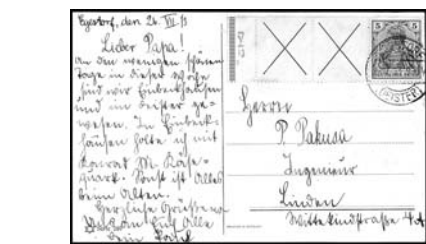 Egestorf, den 26. VI. 13
Lieber Papa!
An den wenigen schönen
Tage in dieser Woche
sind wir Einbeckhausen
und im Deister ge-
wesen. In Einbeck-
hausen holte ich mit
Konrad M. Käse-
quark. Sonst ist Alles
beim Alten.
Herzliche Grüße
an Alle
Dein
5 5
(DEISTER)
Herrn
P. Pakusa
Ingenieur
Linden
Wittekindstraße 4A